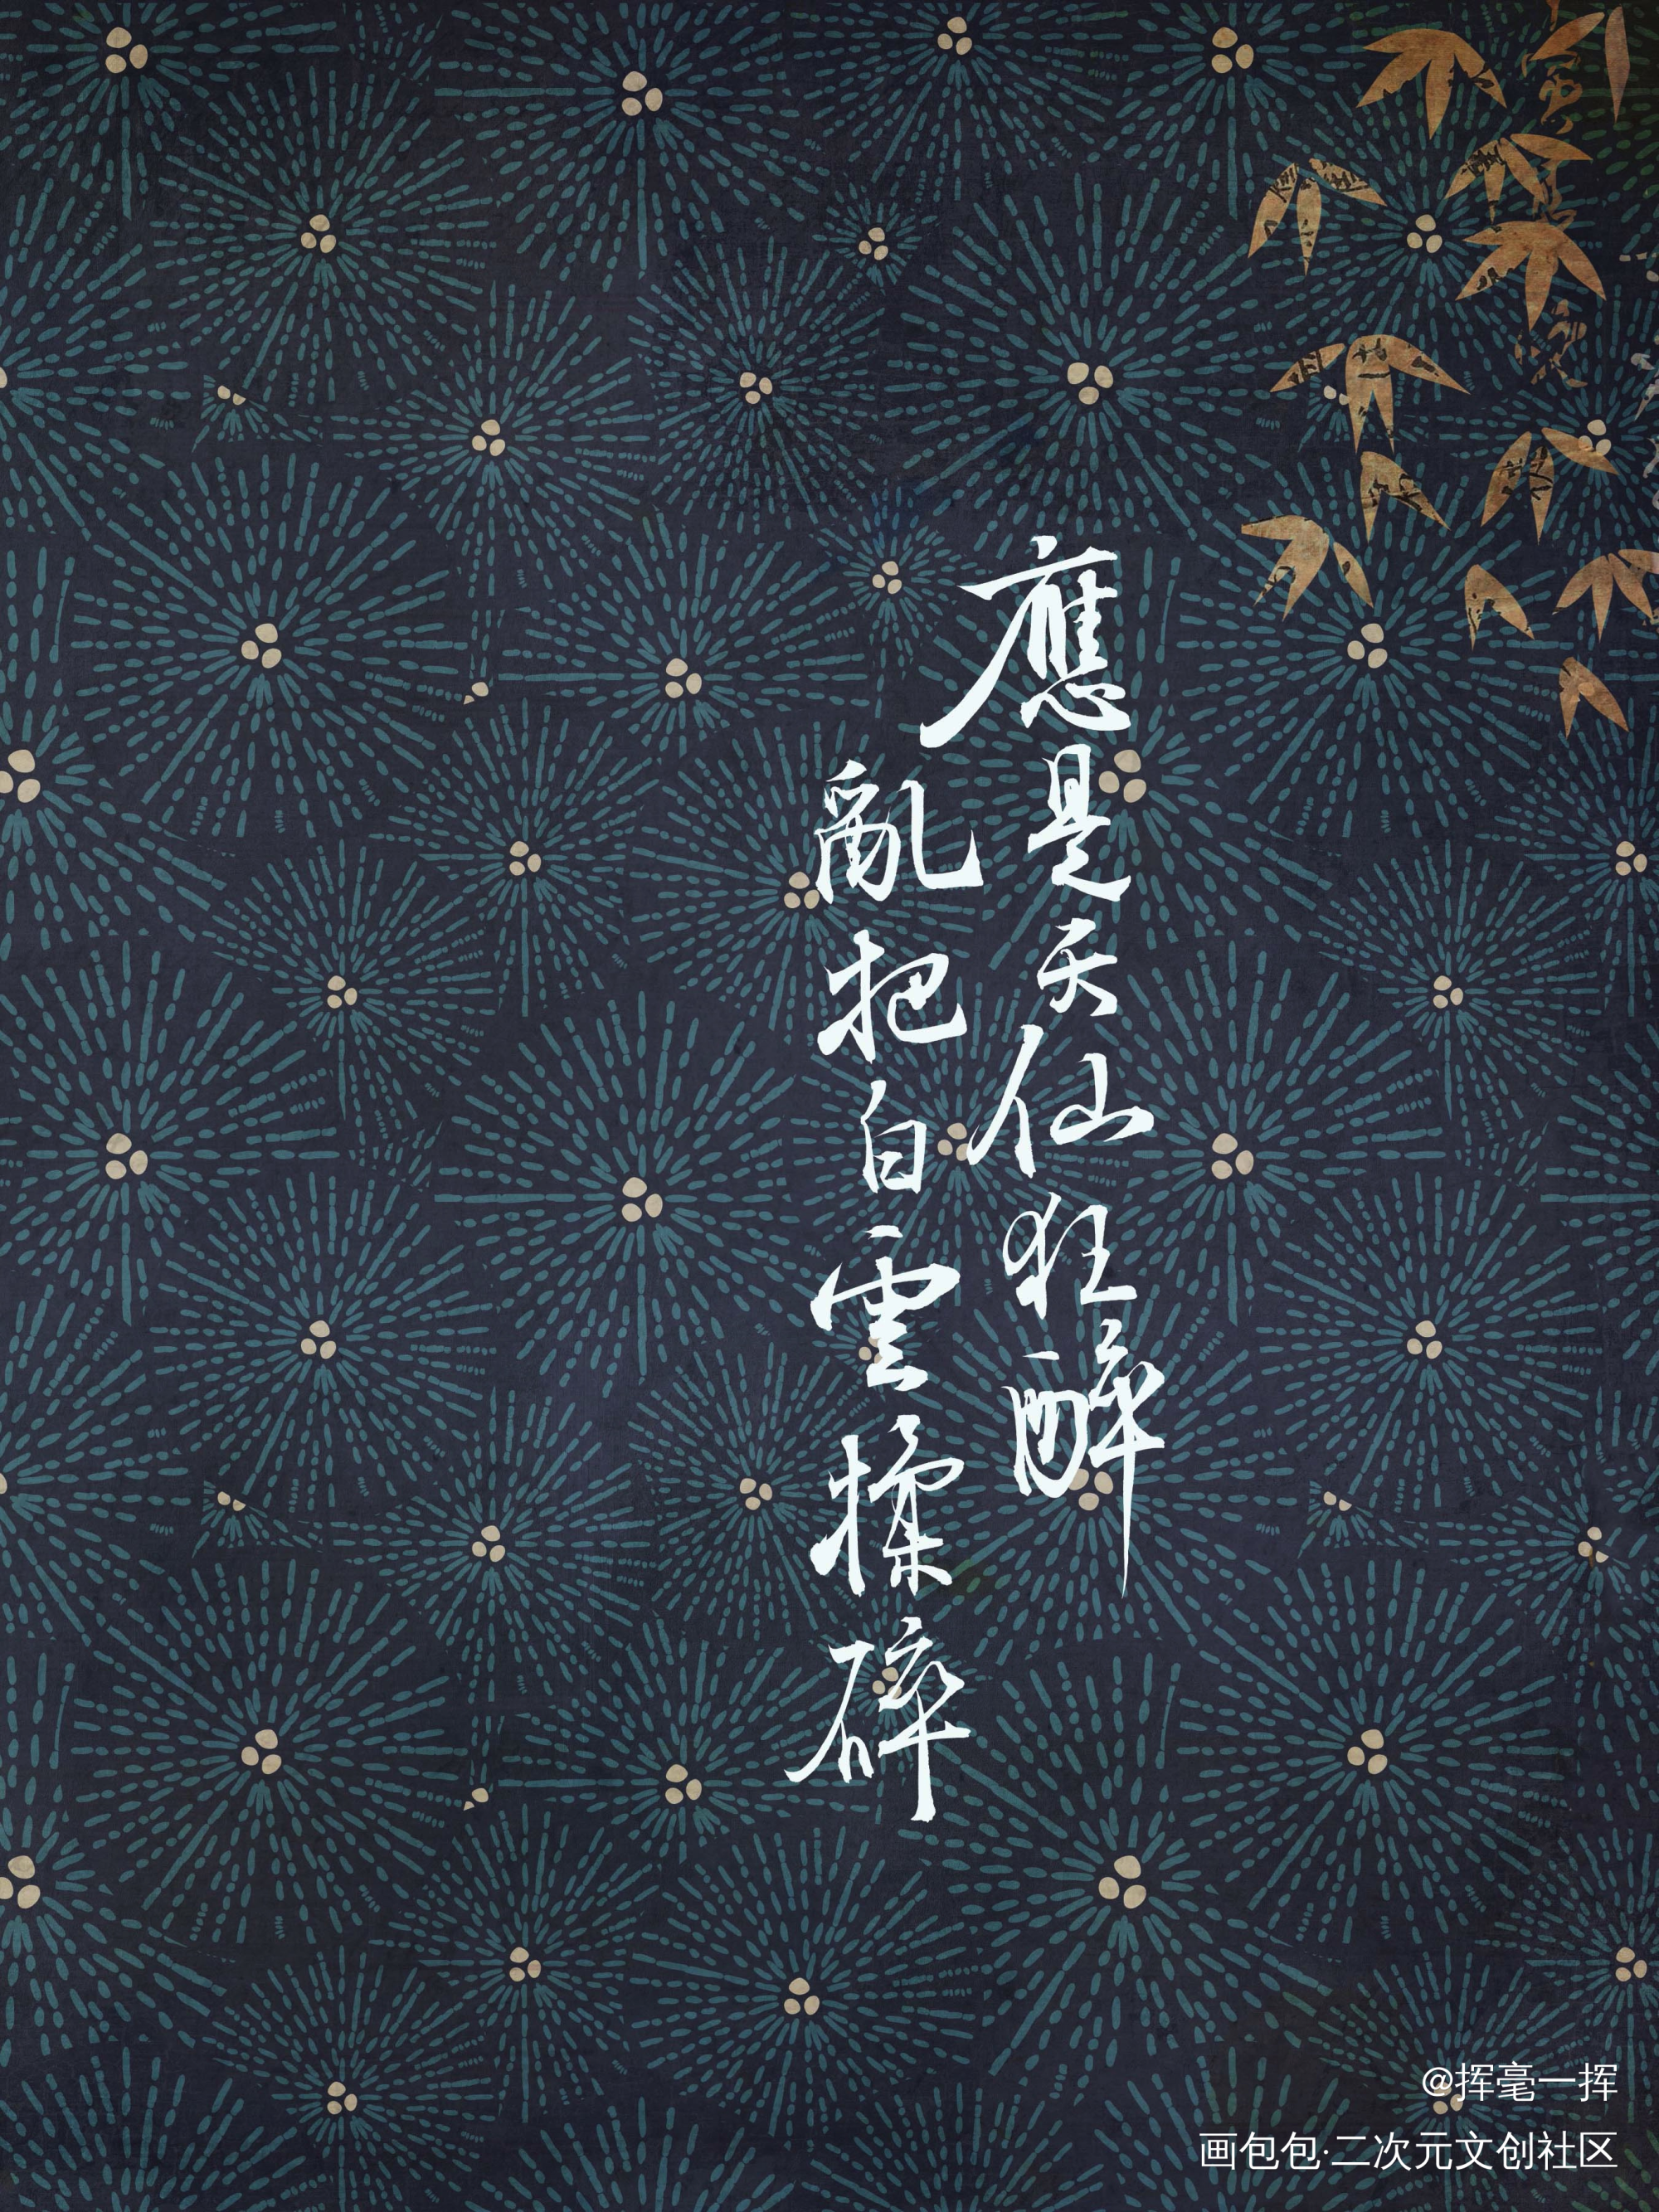 應是天仙狂醉
亂把白雲揉碎
@挥毫一挥
画包包·二次元文创社区